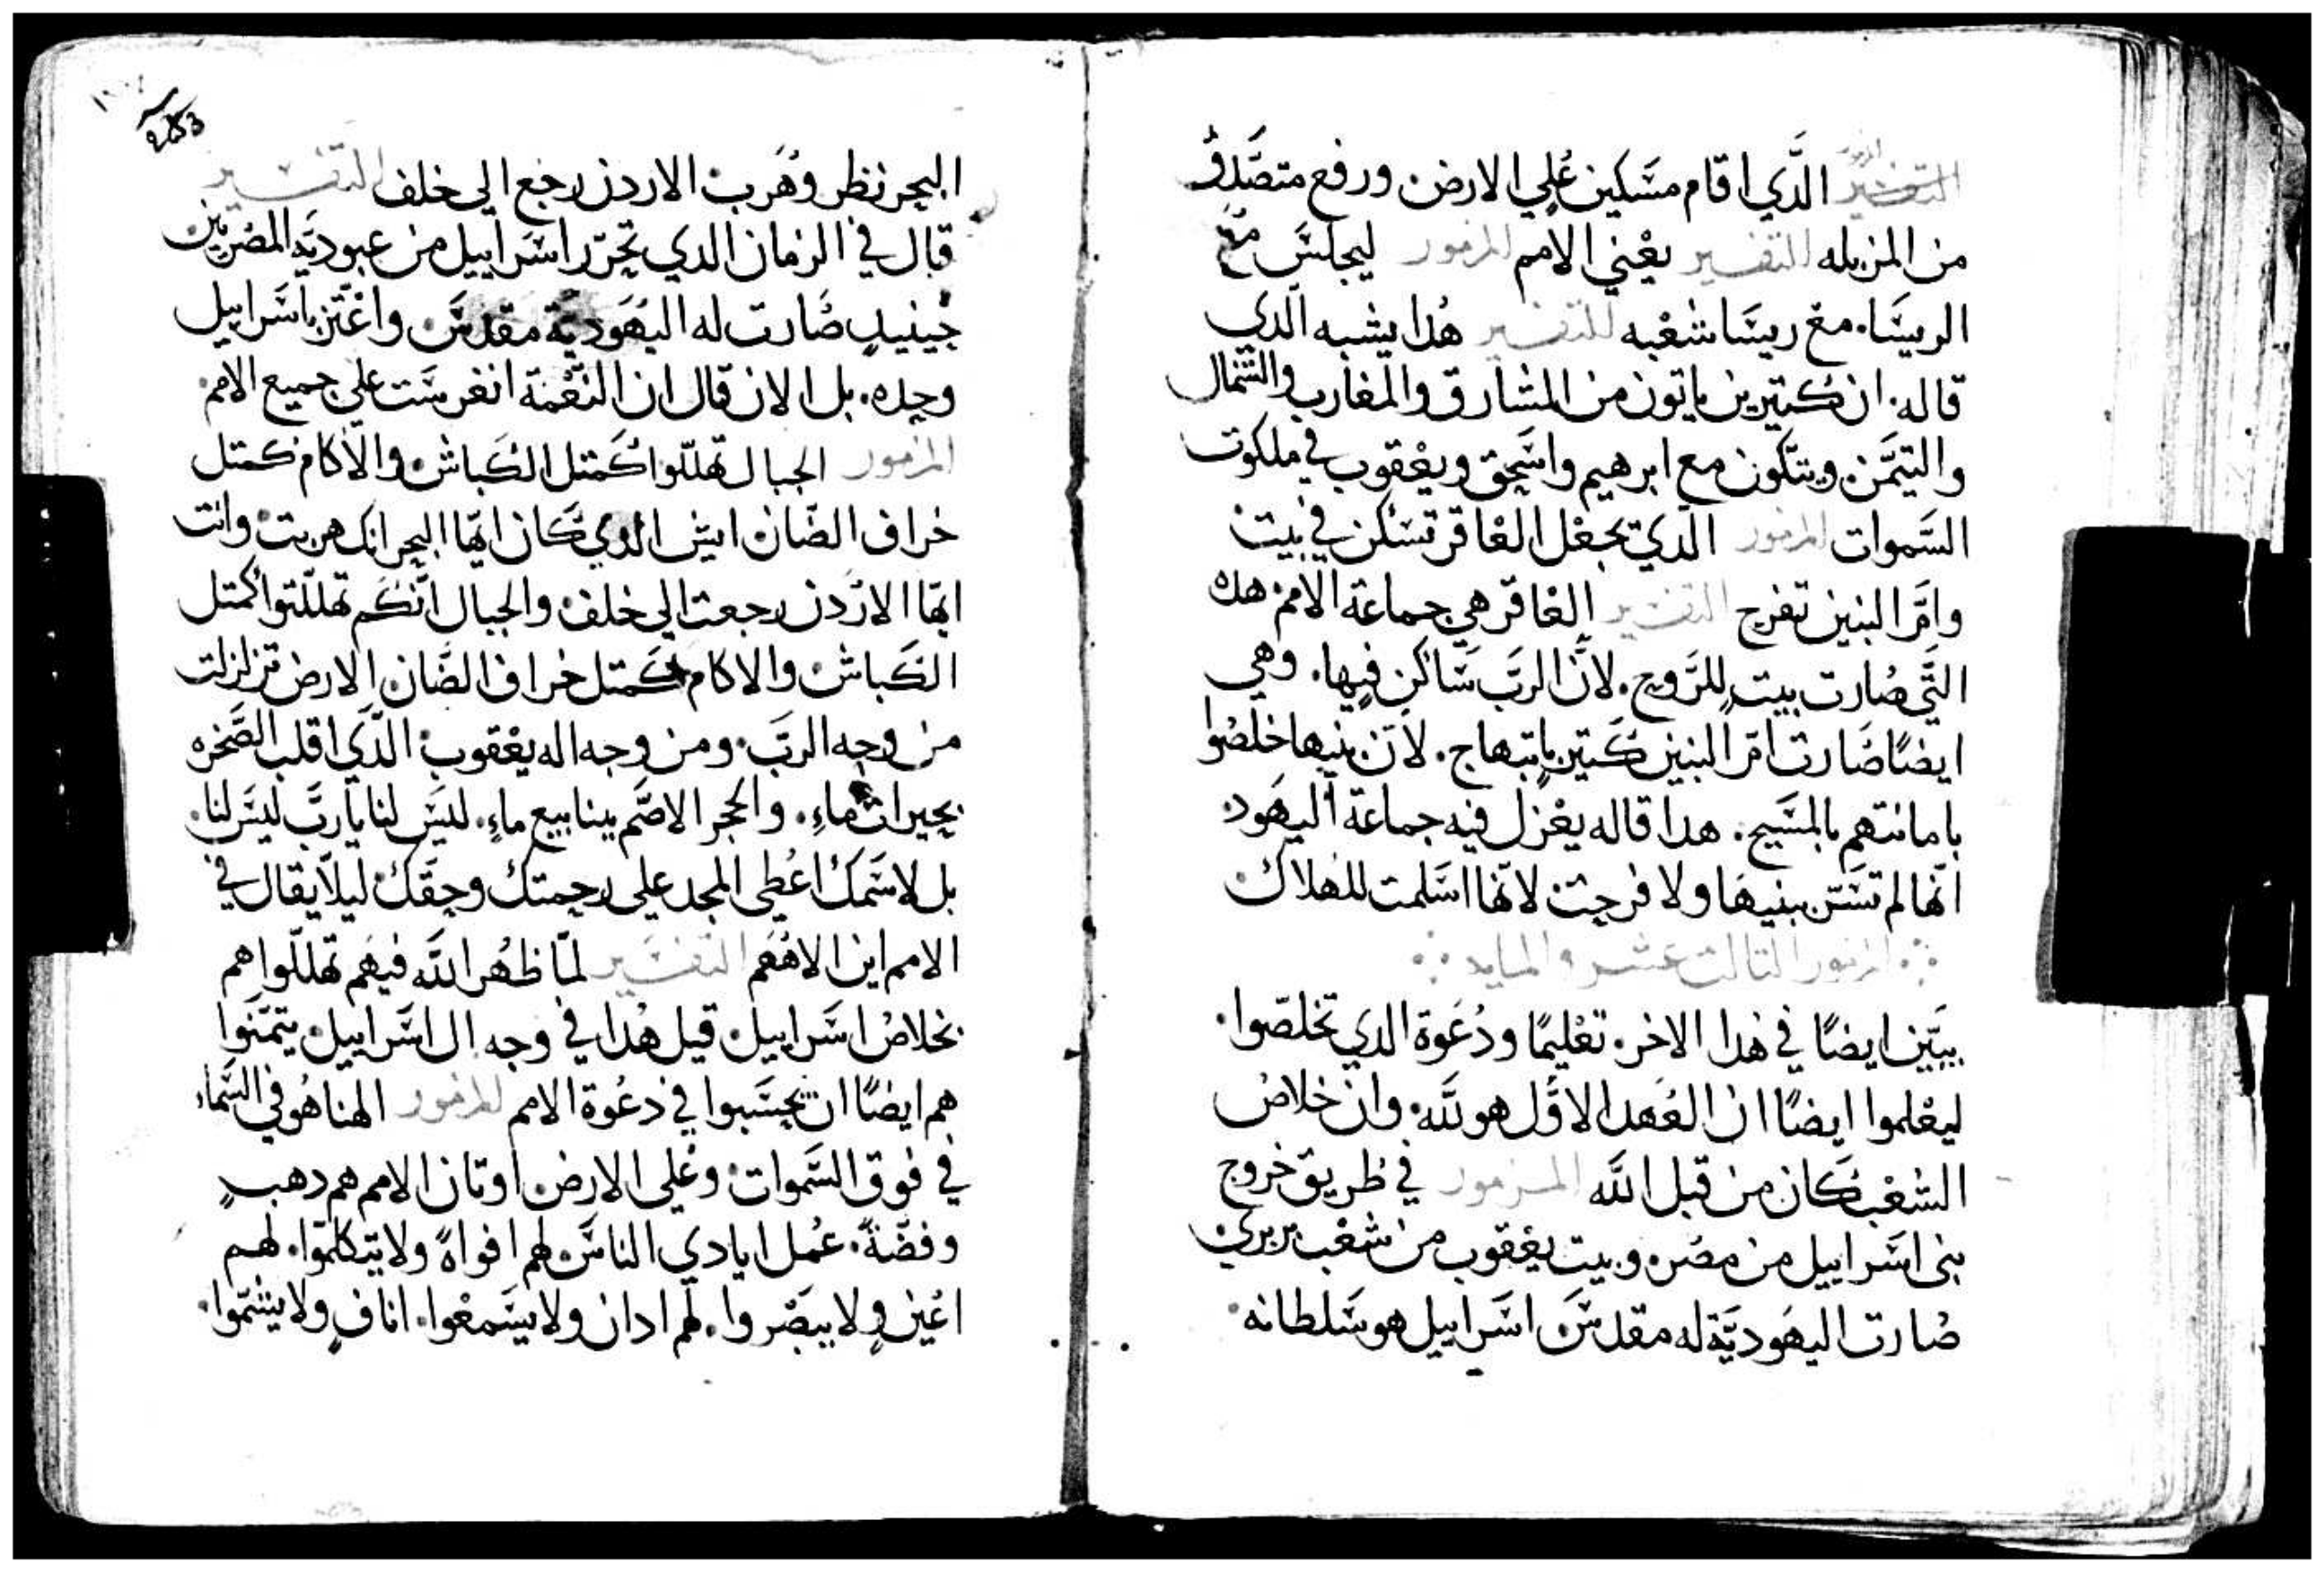 التفسير المزمور الَّذي اقام مسَكين عُلي الارض ورفع متصَّدق
من المزبله التفسير يعْني الامم المزمور ليجلسَ معْ
الريسَا. معْ ريسَا شعْبه التفسير هُدا يشبه الَّدي
قاله. ان كتيرين ياتون من المشارق والمغارب والشمال
والتيمَن ويتكون مع ابرهيم واسَحق ويعْقوب في ملكوت
السَموات المزمور الَّدي يجعْل العْاقر تسَكن في بيت
وامَّ البنين تفرح التفسير العْاقر هي جماعْة الامم هده
التَّي صُارت بيت للرَّوح. لانَّ الربَّ سَاكن فيها. وهي
ايضًا صَارت امّ البنين كتير بابتهاج. لانّ بنيها خلَّصُوا
بامانتهم بالمسَيح. هدا قاله يعْزل فيه جماعْة اليهَود
انّها لم تسَتر ببنيهَا ولا فرحت لانّها اسَلمت للهلاك
المزمور التالت عشر والمايه
يبيّن ايضًا في هُدا الاخر. تعْليمًا ودُعْوة الدي تخلصّوا
ليعْلموا ايضًا ان العْهد الاوَّل هو للَّه. وان خلاصُ
الشعْب كان من قبل اللَّه المزمور في طريق خروج
بنى اسَراييل من مصُر. وبيت يعْقوب من شعْب بربري
صُارت اليهَوديَّة له مقدسَ اسَراييل هو سَلطانه
البحر نظر وهَرب الاردن رجع الي خلف التفسير
قال في الزمان الدي تحرّر اسَراييل من عبوديَّة المصُريّين
حينيدٍ صَارت له اليهَوديّة مقدسَ. واعْتز باسَراييل
وحده. بل الان قال ان النعْمة انغرسَت علي جميع الامم
المزمور الجبال تهللّوا كمَتل الكبَاش والاكام كمتل
خراف الضّان ايش الدي كان ايّها البحر انك هربت وانت
ايّها الارَدن رجعت الي خلف والجبال انَّكم تهللّتوا كمتل
الكَباش والاكام كمَتل خراف الضَّان الارض تزلزلت
من وجه الربَّ. ومن وجه اله يعْقوب الَّدي اقلب الصَّخره
بحيرات ماءٍ. والحجر الاصَّم ينابيع ماءٍ. ليسَ لنا ياربَّ ليسَ لنا.
بل لاسَمك اعُطي المجد علي رحمتك وحقَك ليلّا يقال في
الامم اين الاهُهم التفسَير لمّا ظهُر اللَّه فيهَم تهللّوا هم
بخلاصُ اسَراييل قيل هُدا في وجه ال اسَراييل يتمَنَوا
هم ايضًا ان يحسَبوا في دعُوة الامم المزمور الهنا هُو في السَّماء
في فوق السَّموات وعْلي الارض اوتان الامم هم دهبٍ
وفضّةً. عُمل ايادي الناسَ لهم افواهً ولا يتكلمّوا. لهم
اعْين ولا يبصْروا. لهم ادان ولا يسَمعْوا. انافٍ ولا يشتمّوا.